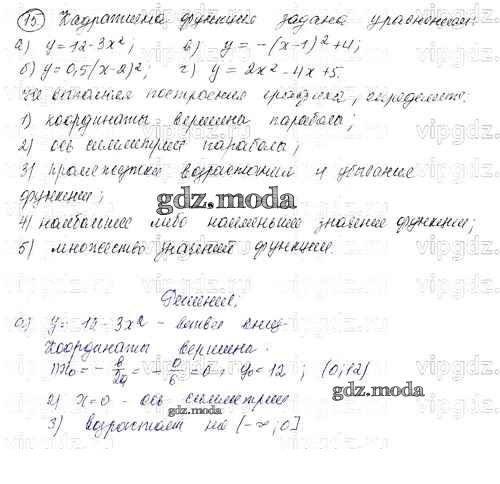 15) Квадратичная функция задана уравнением:
а) y = 12 - 3x²; в) y = -(x-1)² + 4;
б) y = 0,5(x-2)²; г) y = 2x² - 4x + 5.
Не выполняя построения графика, определите:
1) координаты вершины параболы;
2) ось симметрии параболы;
3) промежутки возрастания и убывания
функции;
gdz.moda
4) наибольшее либо наименьшее значение функции;
5) множество значений функции.
Решение:
а) y = 12 - 3x² - ветви вниз
Координаты вершины.
m x₀ = - в/2а = - 0/6 = 0, y₀ = 12; (0; 12)
2) x = 0 - ось симметрии
gdz.moda
gdz.moda
3) возрастает на [-∞; 0]